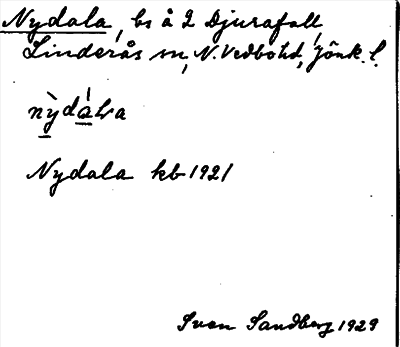 Nydala, bs å 2 Djurafall,
Linderås sn, N. Vedbohd, Jönk. l.
nỳdála
Nydala kb 1921
Sven Sandberg 1929